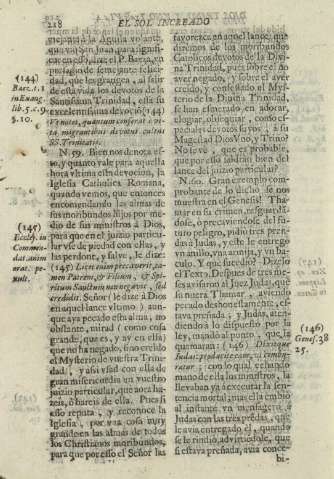 218 EL SOL INCREADO
(144)
Baez. t. 1
in Euang.
lib. 5. c. 9
§. 10.
(145)
Eccles. in
Commen-
dat. anima
penult.
en esso, dize el P. Baeza, vn
presagio de semejante felici-
dad, que les grangea al salir
de esta vida los devotos de la
Santissima Trinidad, esta su
excelentissima devociò: (144)
SS. Trinitatis.
N. 59. Bien nos denota es-
to, y quanto vale para aquella
hora vltima esta devocion, la
Iglesia Catholica Romana,
quando vemos, que entonces
encomendando las almas de
sus moribundos hijos por me-
dio de sus ministros à Dios,
para que en el juizio particu-
lar vse de piedad con ellas, y
las perdone, y salve, le dize:
(145) Licet enim peccaverit, ta-
men Patrem, & Filium, & Spi-
ritum Sanctum non negavit, sed
credidit. Señor (le dize à Dios
en aquel lance vltimo) aun-
que aya pecado esta alma, no
obstante, mirad (como cosa
grande, que es, y ay en ella)
que no ha negado, sino creido
el Mysterio de vuestra Trini-
dad, y assi vsad con ella de
gran misericordia en vuestro
juizio particular, que aora ha-
zeis, ò hareis de ella. Pues si
esso reputa, y reconoce la
Iglesia, por vna cosa muy
grande en las almas de todos
los Christianos moribundos,
para que por esso el Señor las
favorezca en aquel lance: que
diremos de los moribundos
Catholicos devotos de la Divi-
na Trinidad, pues sobre el no
aver negado, y sobre el aver
creido, y confessado el Mys-
terio de la Divina Trinidad,
se han esmerado en adorar,
elogiar, obsequiar, como es-
peciales devotos suyos, à su
Magestad Dios Vno, y Trino?
No se vè, que es probable,
que por esso saldràn bien del
lance del juizio particular?
N. 60. Gran exemplo com-
probante de lo dicho se nos
muestra en el Genesis! Tha-
mar en su crimen, resguardã-
dose, ò precaviendose del fu-
turo peligro, pidiò tres pren-
das à Judas, y este le entregò
vn anillo, vna armilla, y vn ba-
culo. Y que sucediò? Dizelo
el Texto. Despues de tres me-
ses avisaron al Juez Judas, que
su nuera Thamar, aviendo
pecado deshonestamente, es-
tava preñada; y Judas, aten-
diendo à lo dispuesto por la
ley, mandò al punto, que la
quemaran: (146) Dixitque
Iudas: producite eam, vt combu-
ratur; con lo qual echando
mano de ella los ministros, la
llevaban yà à executar la sen-
tencia mortal; mas ella embiò
al instante vn mensagero à
Judas con las tres prendas, que
le avia entregado èl, quando
se le rindiò, advirtiendole, que
si estava preñada, avia conce-
bi-
(146)
Genes. 38
25.